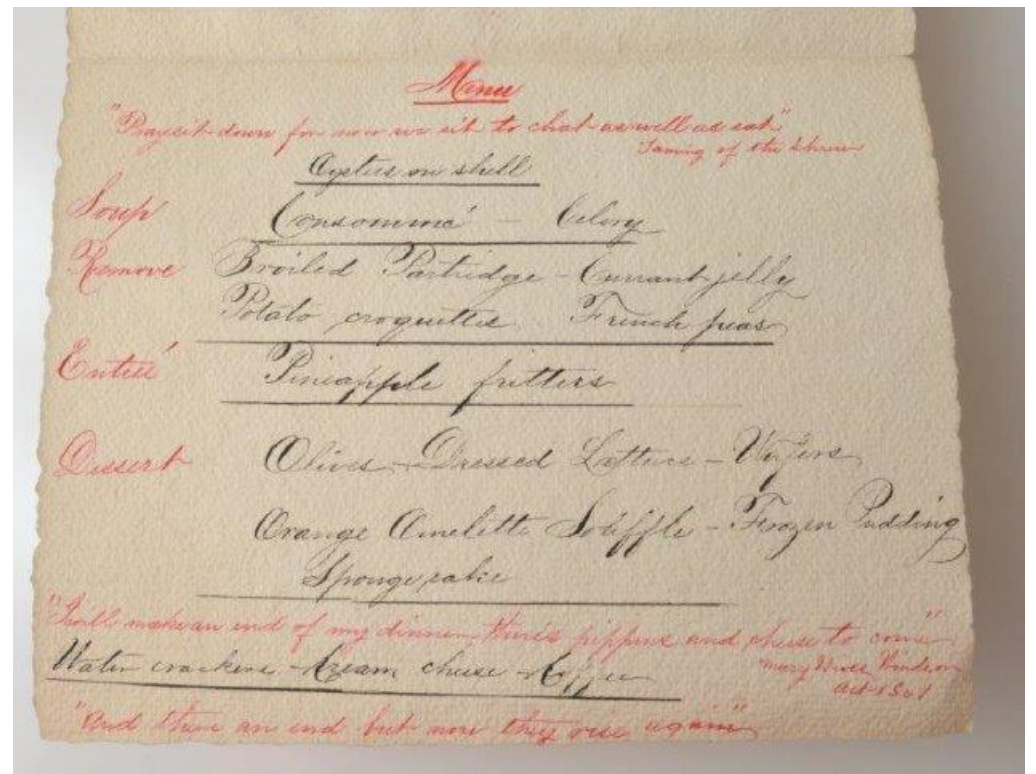 Menu
"Pray sit down for now we sit to chat as well as eat"
Taming of the Shrew
Oysters on shell
Soup Consommé - Celery
Remove Broiled Partridge - Currant jelly
Potato croquettes French peas
Entreé Pineapple fritters
Dessert Olives - Dressed Lettuce - Wafers
Orange Omelette Souffle - Frozen Pudding
Sponge cake
"I will make an end of my dinner, there's pippins and cheese to come"
Merry Wives Windsor
Water crackers - Cream cheese - Coffee
act 1 Sc 1
"And there an end but now they rise again"